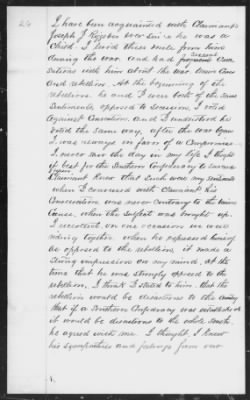 I have been acquainted with Claimant
Joseph J Rigsbee ever since he was a
Child. I lived three miles from him
during the war. and had frequent Conver
sations with him about the war, Union Cause
and rebellion. At the beginning of the
rebellion he and I were both of the same
Sentiments, opposed to secession, I voted
against Convention, and I understood he
voted the same way, after the war began
I was always in favor of a Compromise.
I never saw the day in my life, I thought
it best for the Southern Confederacy to succeed
Claimant knew that such was my sentiments
when I conversed with Claimant His
Conversation was never contrary to the Union
Cause, when the subject was brought up.
I recollect, on one occasion we were
riding together when he expressed himself
as opposed to the rebellion, it made a
strong impression on my mind, at the
time that he was strongly opposed to the
rebellion, I think I stated to him, that the
rebellion would be disastrous to the country
that if a Southern Confederacy was established
it would be disastrous to the whole South
he agreed with me. I thought I knew
his sympathies and feelings from our